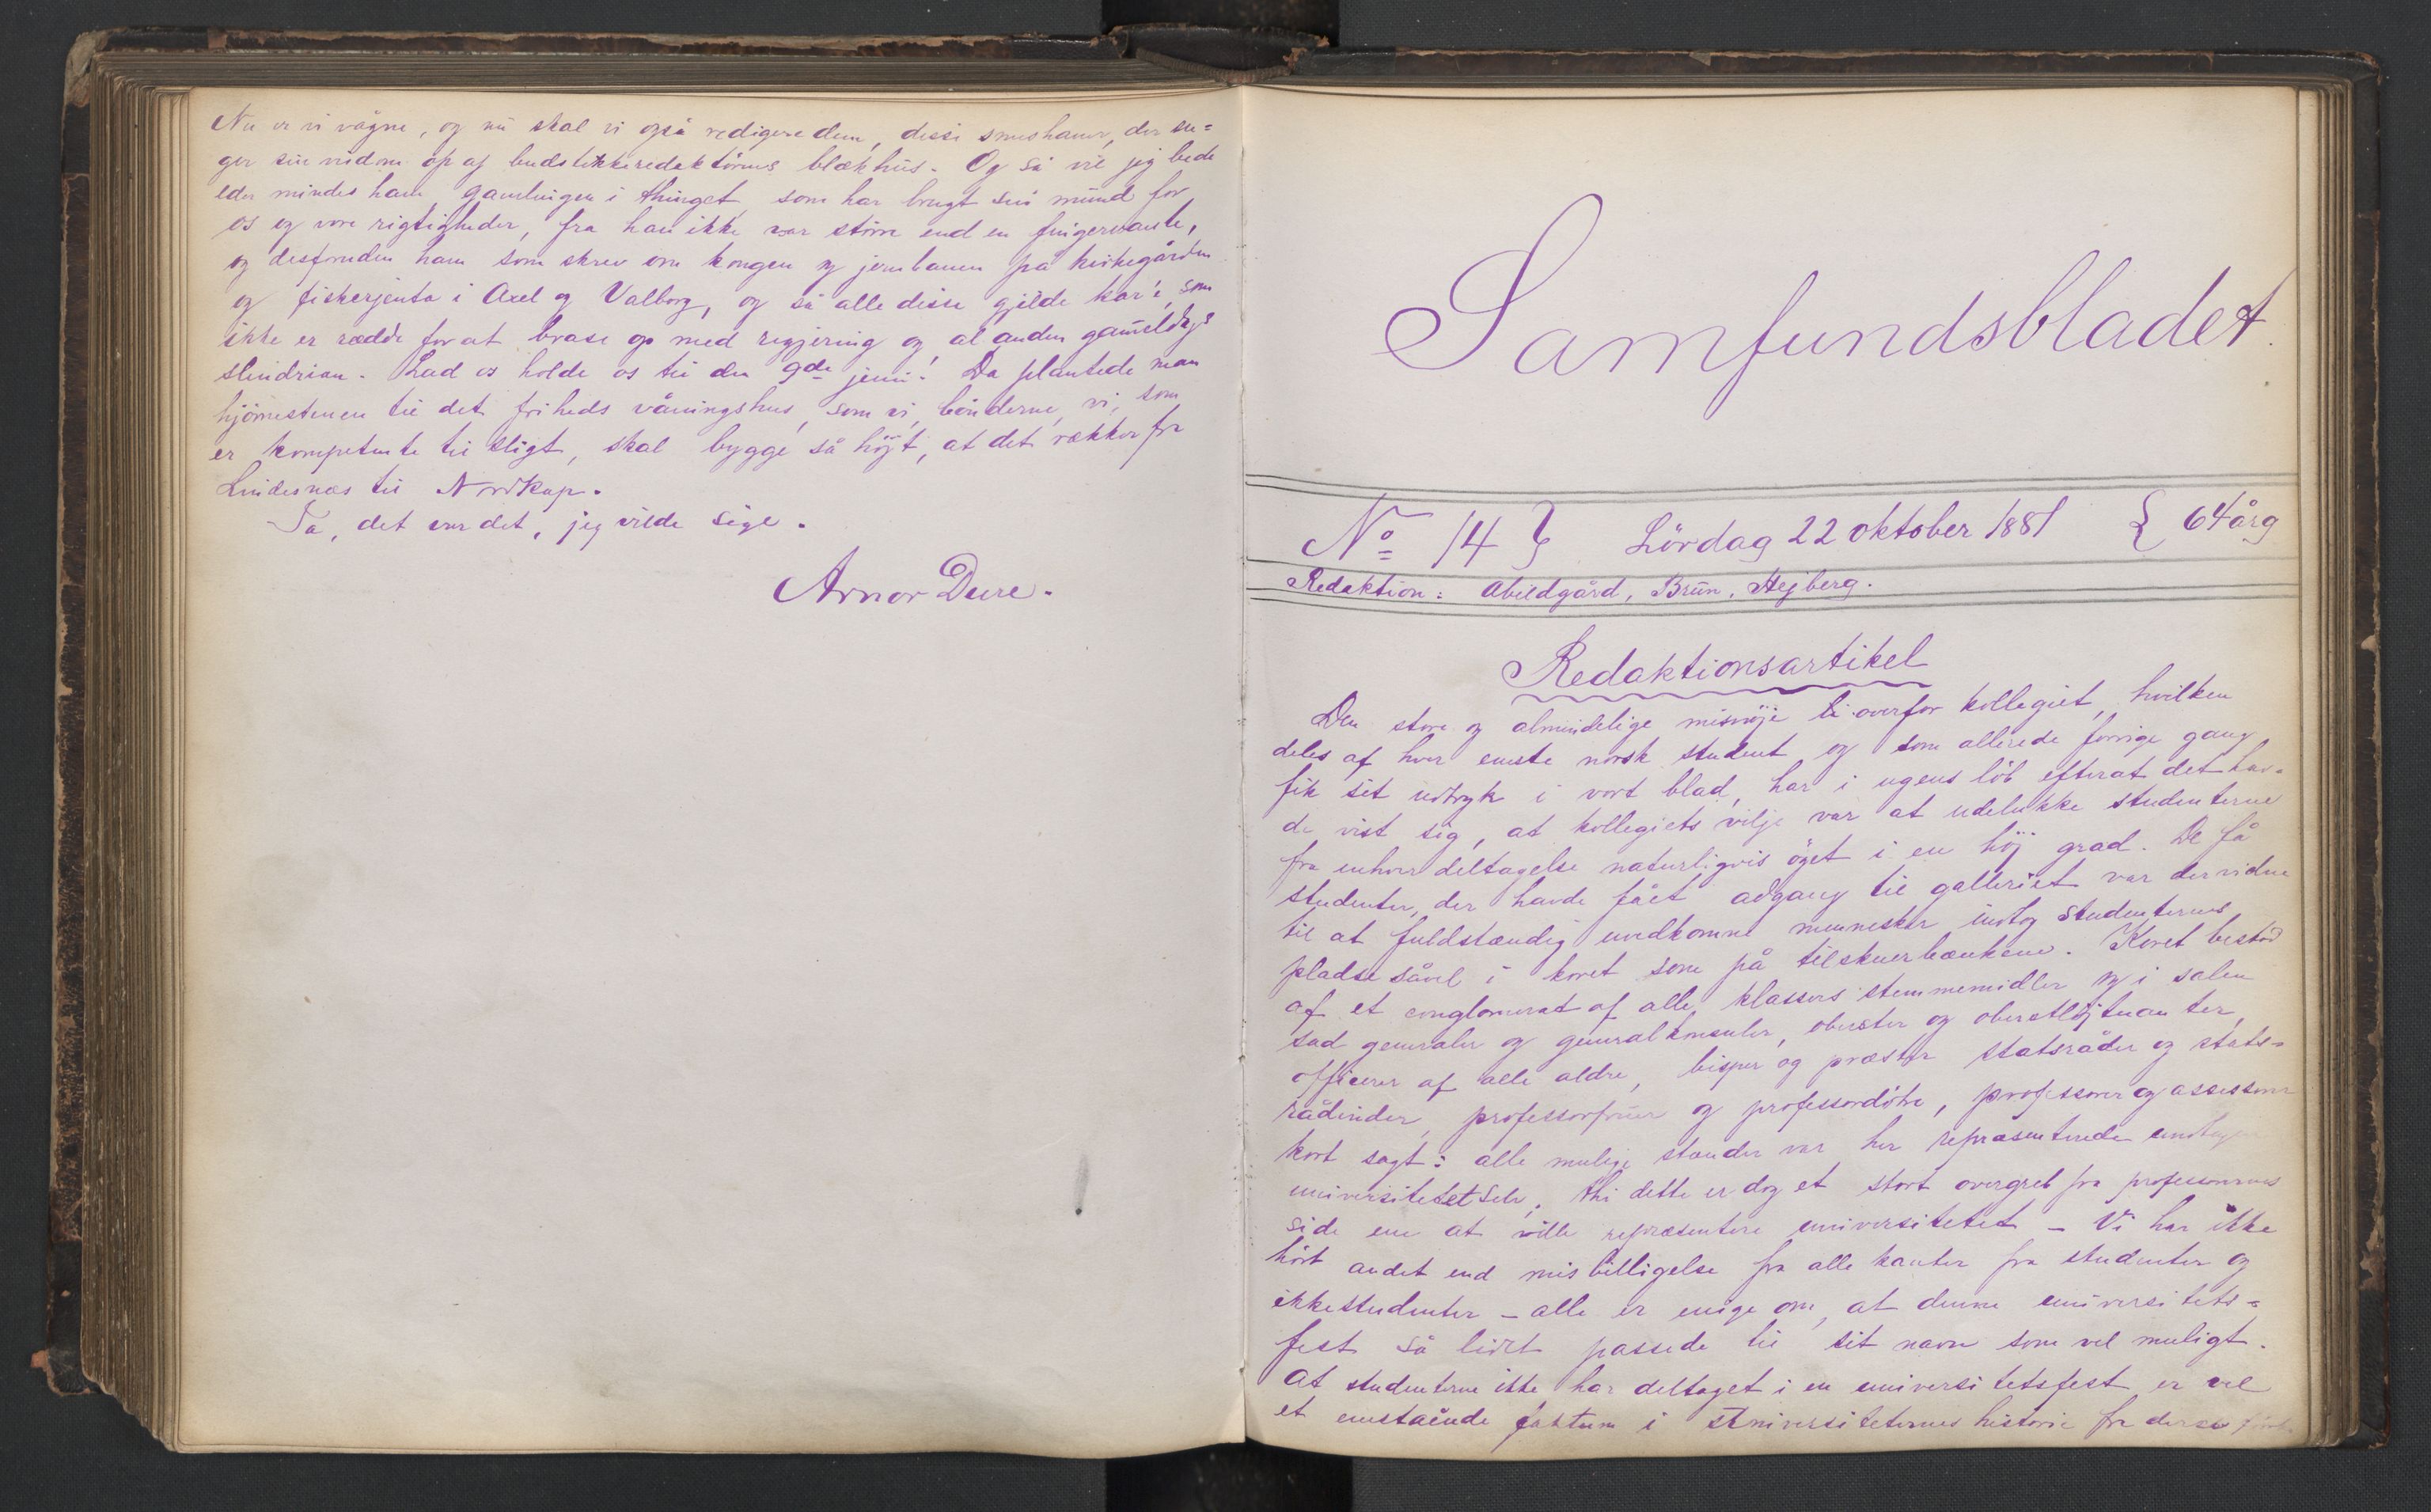 Nu er vi vågne, og nu skal vi også redigere dem, disse snushaner, der su=
ger sin visdom op af budstikkeredaktörens blækhus. Og så vil jeg bede
eder mindes ham, gamlingen i thinget, som har brugt sin mund for
os og vore rigtigheder, fra han ikke var större end en fingervante,
og desforuden ham som skrev om kongen og jernbanen på kirkegården
og fiskerjenta i Axel og Valborg, og så alle disse gjilde kar'e, som
ikke er rædde for at brase op med regjering og al anden gammeldags
slendrian. Lad os holde os til den 9de juni! Da plantede man
hjörnestenen til det friheds våningshus, som vi, bönderne, vi, som
er kompetente til sligt, skal bygge så höjt, at det rækker fra
Lindesnæs til Nordkap.
Ja, det var det, jeg vilde sige.
Arnor Dure.
Samfundsbladet.
No 14 } Lördag 22 oktober 1881 { 64 årg
Redaktion: Abildgård, Brun, Hejberg.
Redaktionsartikel
Den store og almindelige misnöje li overfor kollegiet, hvilken
deles af hver eneste norsk student og som allerede forrige gang
fik sit udtryk i vort blad, har i ugens löb efterat det hav=
de vist sig, at kollegiets vilje var at udelukke studenterne
fra enhver deltagelse naturligvis öget i en höj grad. De få
studenter, der havde fået adgang til galleriet var der vidne
til at fuldstændig uvedkomne mennesker indtog studenternes
pladse såvel i koret som på tilskuerbænkene. Koret bestod
af et conglomerat af alle klassers stemmemidler og i salen
sad generaler og generalkonsuler, oberster og oberstlöjtnanter,
officerer af alle aldre, bisper og præster statsråder og stats=
rådinder, professorfruer og professordötre, professorer og assessorer
kort sagt: alle mulige stænder var her repræsenterede undtagen
universitetet selv, thi dette er dog et stort overgreb fra professorernes
side ene at ville repræsentere universitetet – Vi har ikke
hört andet end misbilligelse fra alle kanter fra studenter og
ikkestudenter – alle er enige om, at denne universitets=
fest så lidet passede til sit navn som vel muligt.
At studenterne ikke har deltaget i en universitetsfest er vel
et enestående faktum i Universiteternes historie fra deres